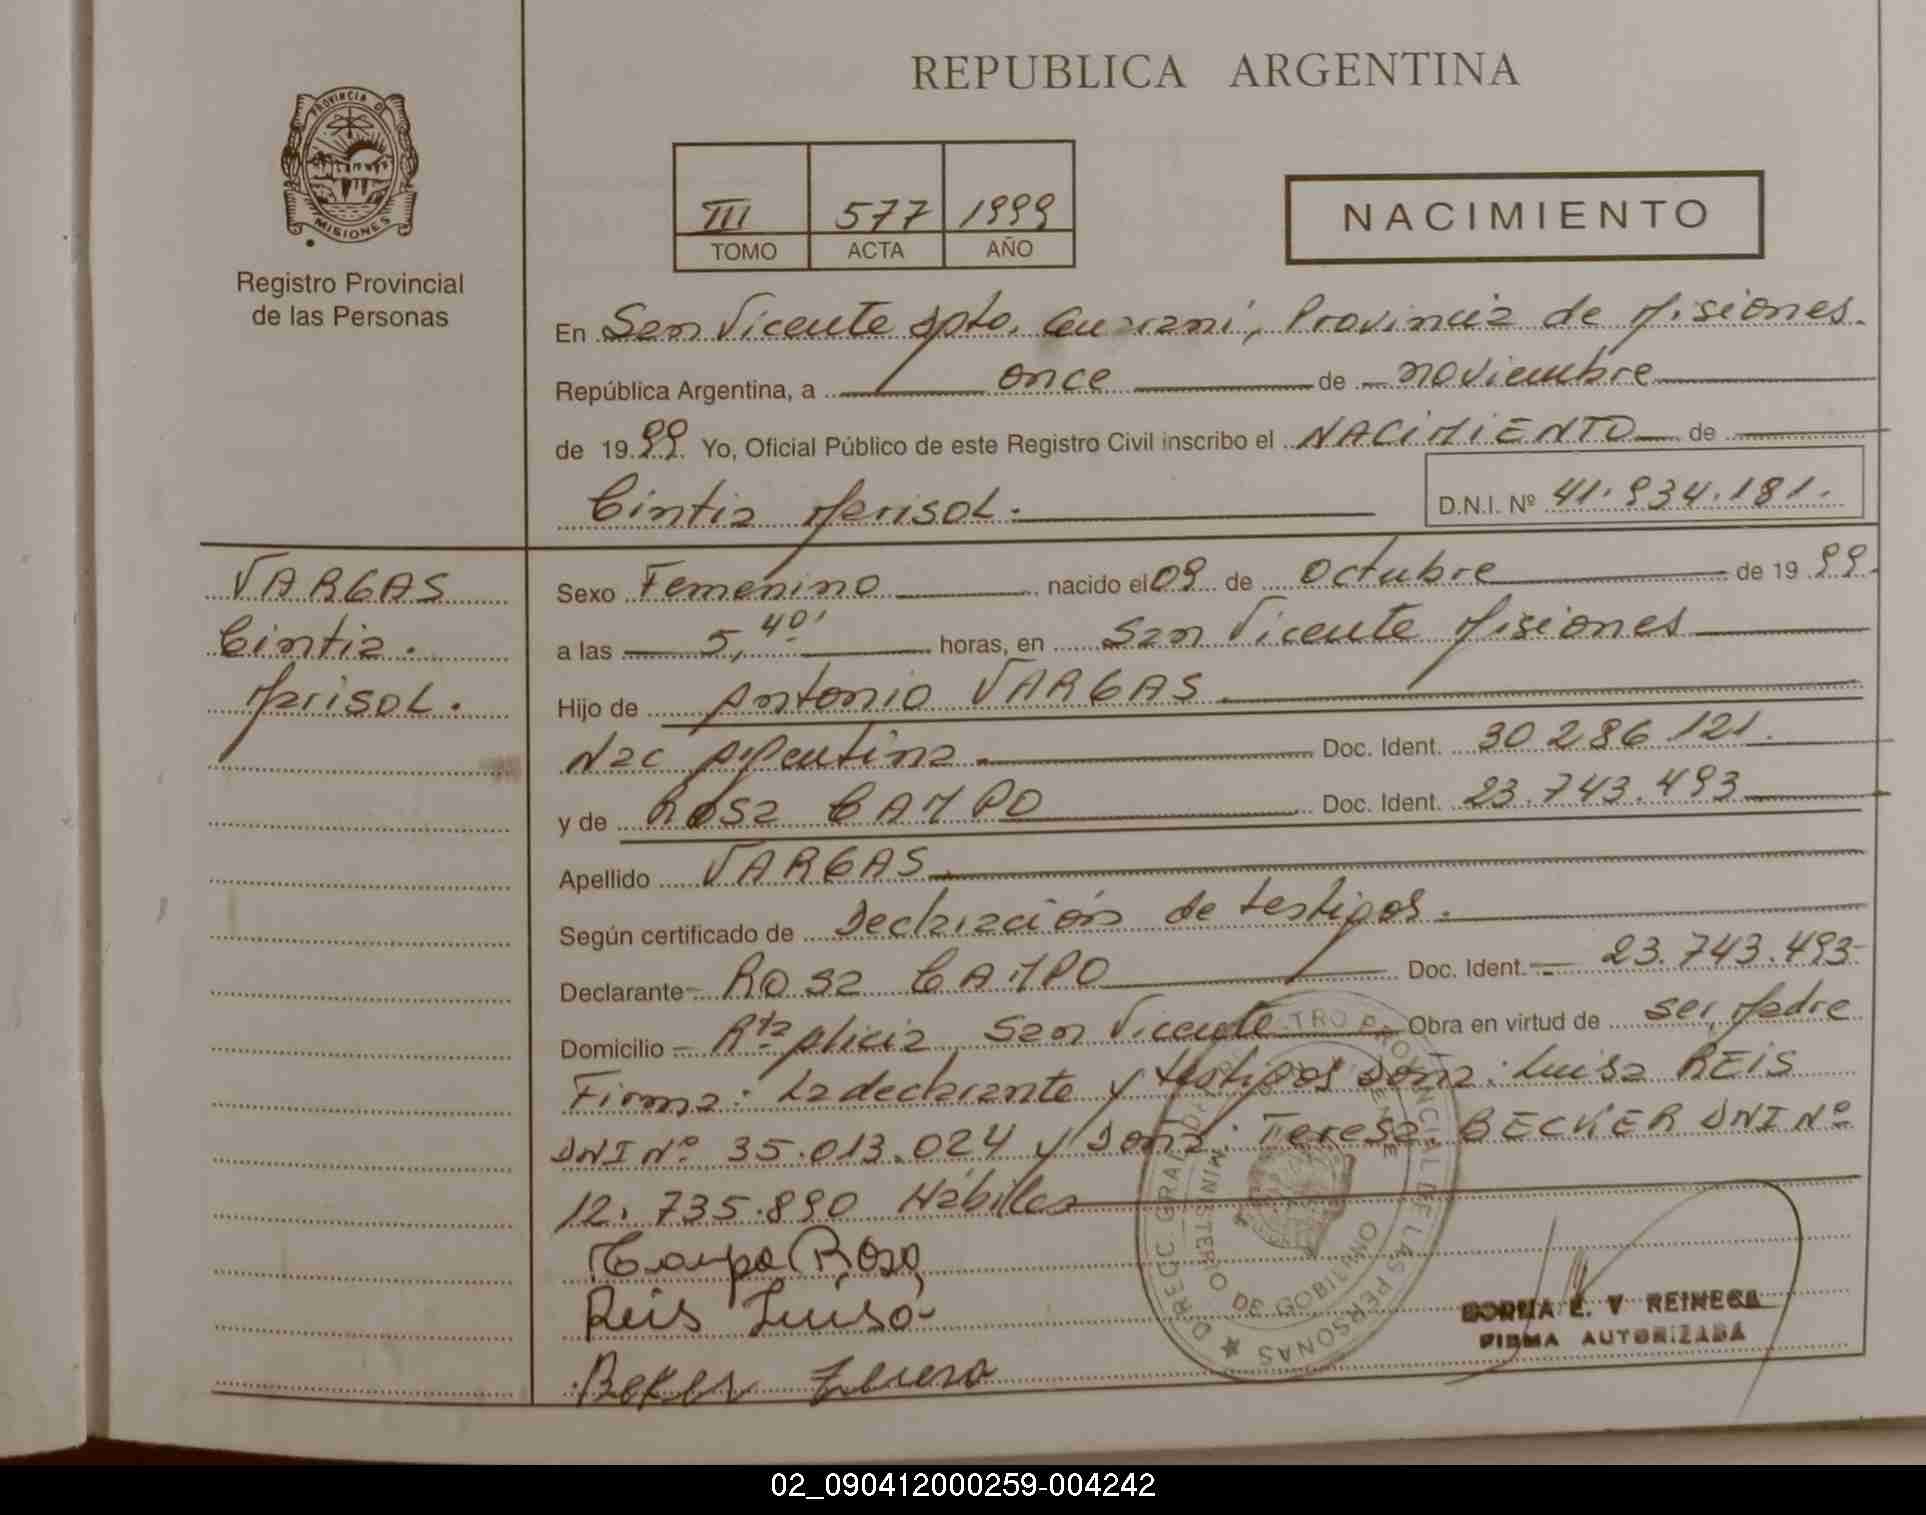 REPUBLICA ARGENTINA
PROVINCIA D
MISIONES
Registro Provincial
de las Personas
III 577 1999
TOMO ACTA AÑO
NACIMIENTO
En San Vicente Dpto. Guaraní, Provincia de Misiones.
República Argentina, a once de noviembre
de 1999 Yo, Oficial Público de este Registro Civil inscribo el NACIMIENTO de
Cintia Marisol.
D.N.I. Nº 41.934.181.
VARGAS
Cintia.
Marisol.
Sexo Femenino nacido el 09 de Octubre de 1999.
a las 5,40' horas, en San Vicente Misiones
Hijo de Antonio VARGAS.
Nac Argentina. Doc. Ident. 30 286 121.
y de Rosa CAMPO Doc. Ident. 23.743.493
Apellido VARGAS
Según certificado de Declaración de testigos.
Declarante Rosa CAMPO Doc. Ident. 23.743.493
Domicilio Rta Alicia San Vicente Obra en virtud de ser Madre
Firma: La declarante y testigos Doña: Luisa REIS
DNI Nº 35.013.024 y Doña: Teresa BECKER DNI Nº
12.735.890 Hábiles
Campo Rosa
Reis Luisa
Beker
FIRMA AUTORIZADA
02_090412000259-004242